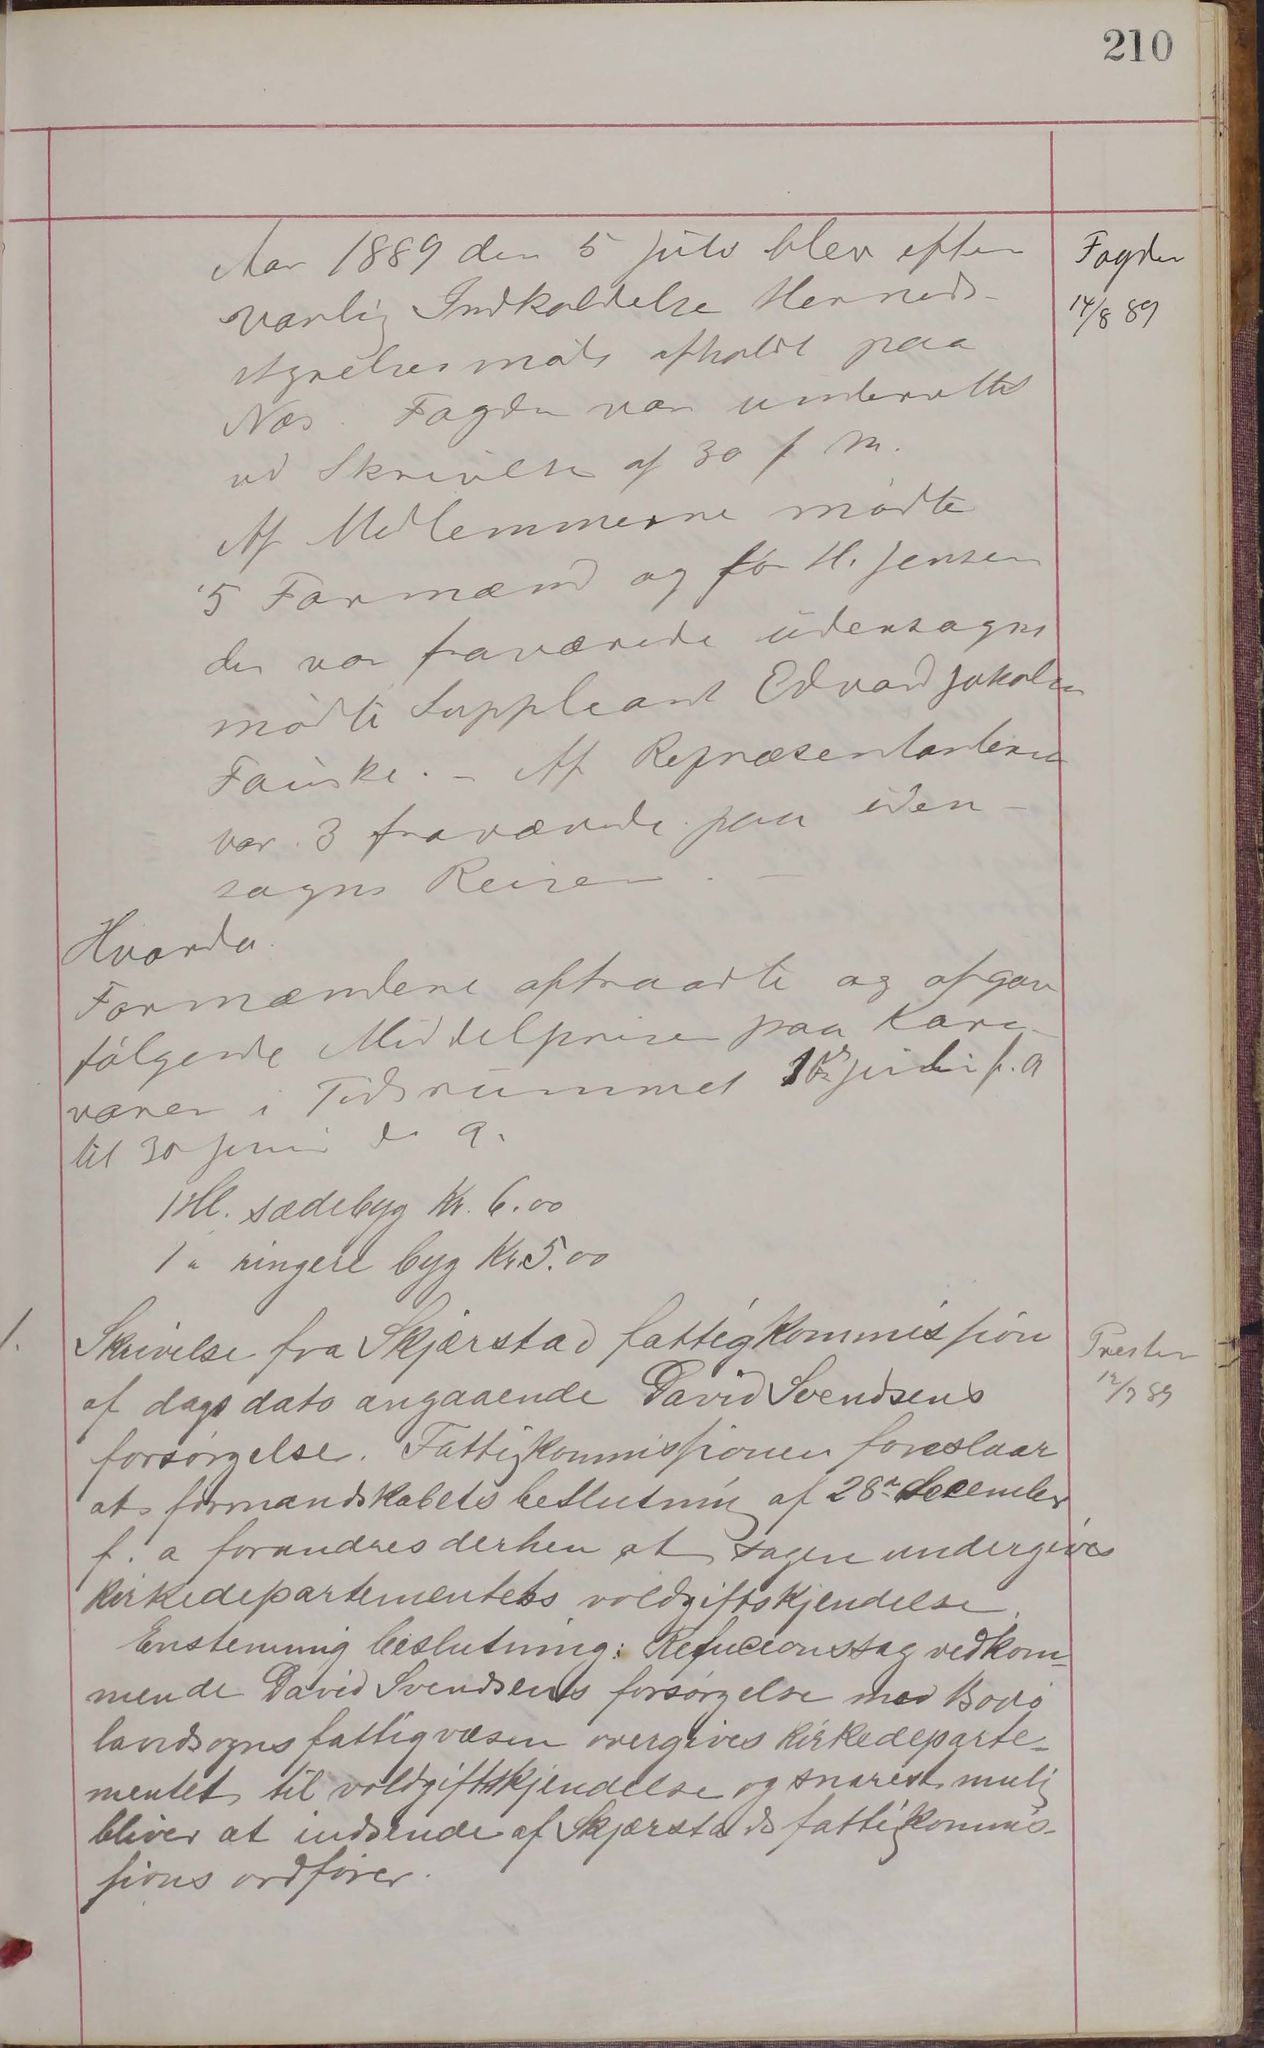 210
Aar 1889 den 5 Juli blev efter
vanlig Indkaldelse Herreds-
styrelsesmøde afholdt paa
Næs. Fogden var underrettet
ved Skrivelse af 30 f. M.
Af Medlemmerne mødte
5 Formænd og for H. Jensen
der var fraværende udensogns
mødte Suppleant Edvard Jakobsen
Fauske. - Af Repræsentanterne
var 3 fraværende paa uden-
sogns Reiser. -
Fogden
14/8 89
Hvorda
Formændene aftraadte og afgav
følgende Middelpriser paa Korn-
varer i Tidsrummet 1ste juli f. a
til 30 juni d. a.
1 Hl. sædebyg Kr. 6.00
1 " ringere byg Kr. 5.00
1.
Skrivelse fra Skjærstad fattigkommission
af dags dato angaaende David Svendsens
forsørgelse. Fattigkommissionen foreslaar
at formandskabets beslutning af 28de december
f. a forandres derhen at sagen undergives
kirkedepartementets voldgiftskjendelse.
Enstemmig beslutning: Refucionssag vedkom-
mende David Svendsens forsørgelse med Bodø
landsogns fattigvæsen overgives kirkedeparte-
mentet til voldgiftskjendelse og snarest mulig
bliver at indsende af Skjærstads fattigkommis-
sions ordfører.
Presten
12/7 89